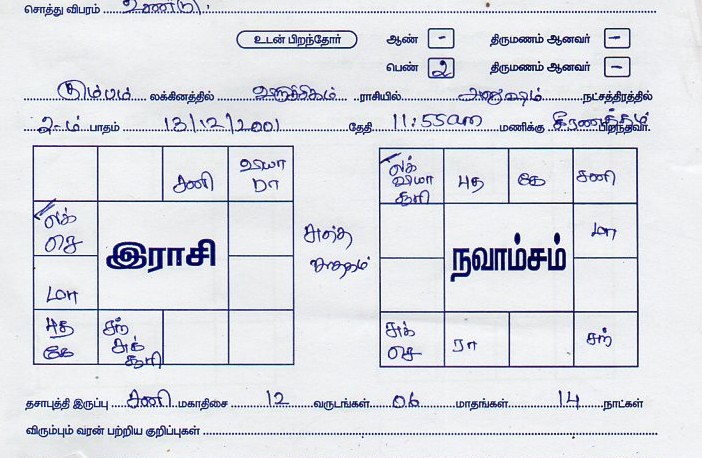 சொத்து விபரம் உண்டு.
உடன் பிறந்தோர் ஆண் - திருமணம் ஆனவர் -
பெண் 2 திருமணம் ஆனவர் -
கும்பம் லக்கினத்தில் விருச்சிகம் ராசியில் அனுஷம் நட்சத்திரத்தில்
2-ம் பாதம் 13/12/2001 தேதி 11:55am மணிக்கு பிறந்தவர்.
சனி
ரா
லக்
செ
இராசி
மா
புத
கே
சுக்
லக்
புத கே சனி
மா
நவாம்சம்
சுக்
செ
ரா
தசாபுத்தி இருப்பு சனி மகாதிசை 12 வருடங்கள் 06 மாதங்கள் 14 நாட்கள்
விரும்பும் வரன் பற்றிய குறிப்புகள்